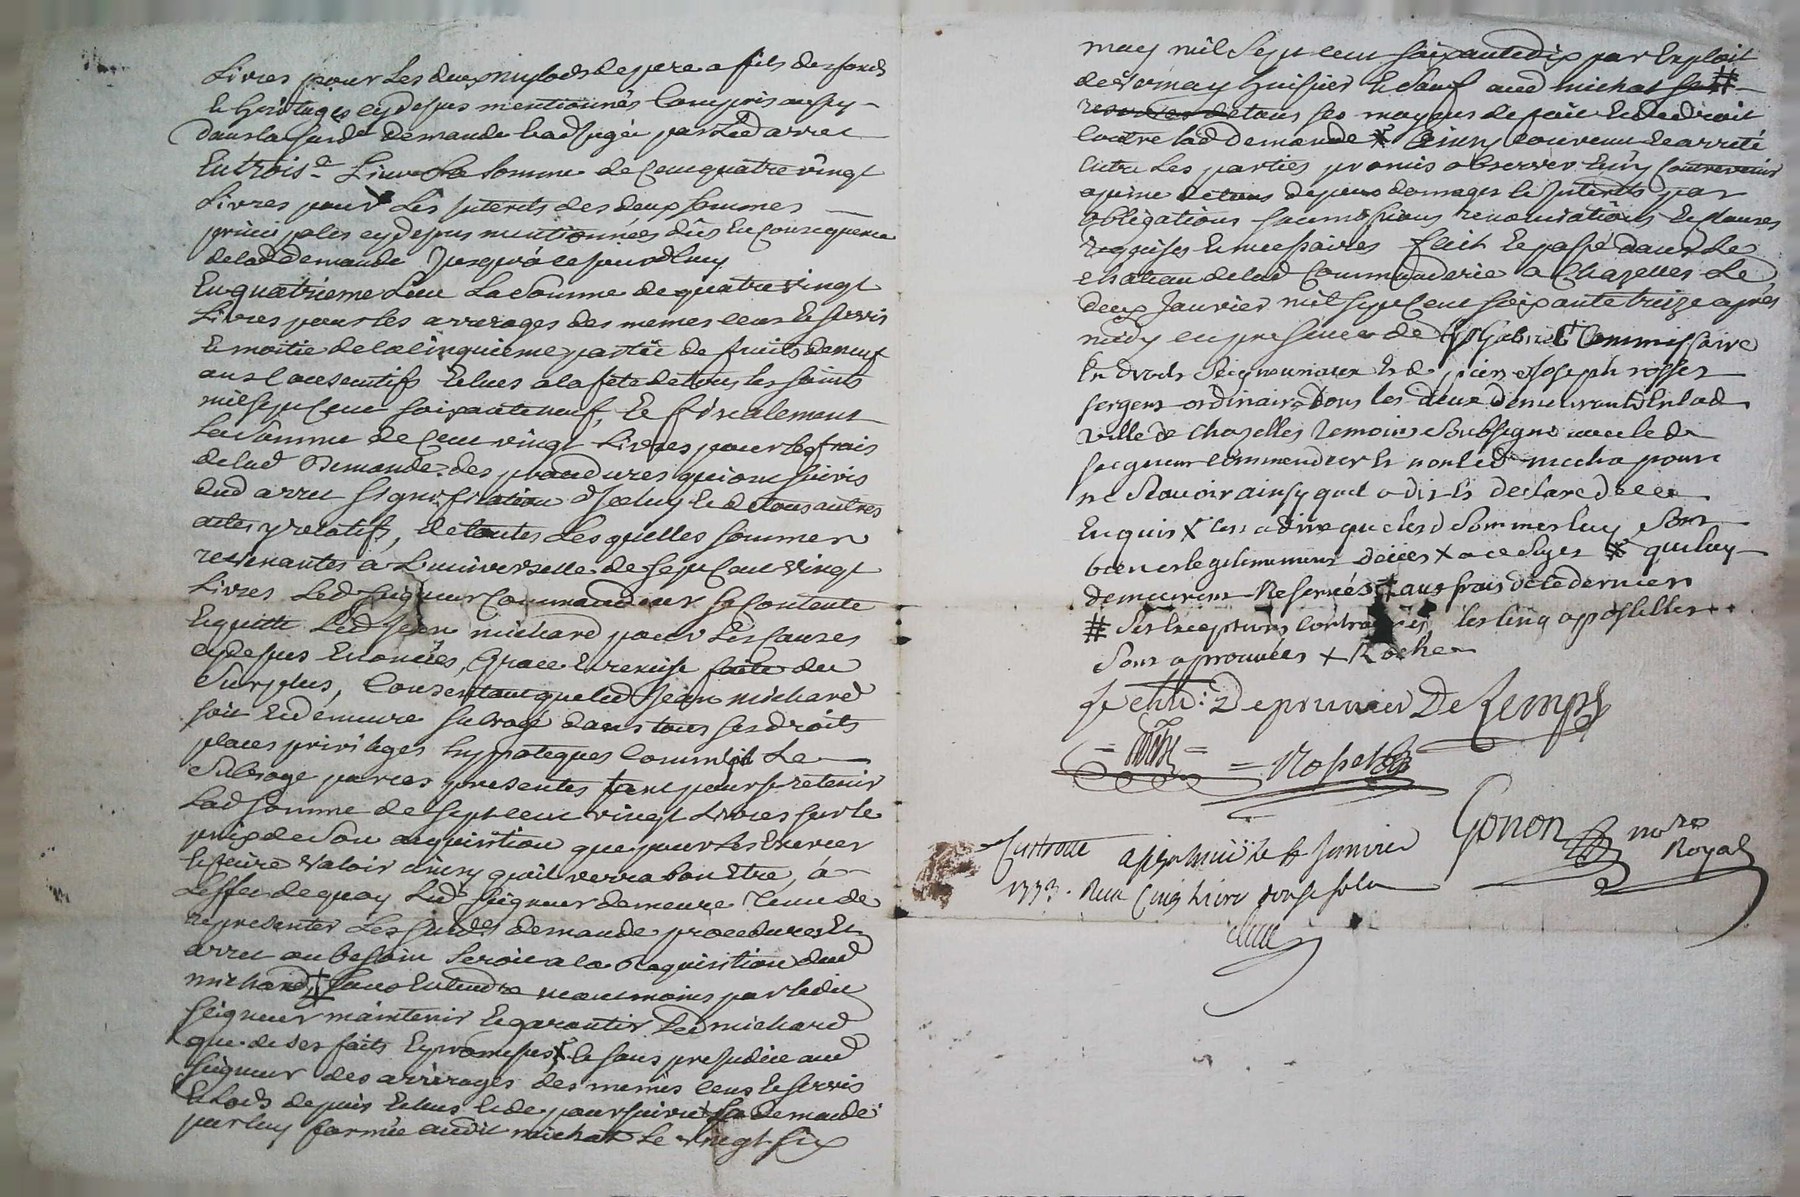 Livres pour Les deux mylods de pere a fils des fonds
et heritages cy depus mentionnés Compris aussy
dans la susd demande et adjugée par led arret
En trois.e Lieu La somme de Cent quatre vingt
Livres pour Les Interets des deux sommes
principales cy depus mentionnées dûs En Consequence
de lad demande Jusqua ce jourdhuy
En quatrieme Lieu La somme de quatre vingt
Livres pour les arrerages des memes Cens et servis
Et moitié de la cinquieme partie de fruits de neuf
ans Consecutifs Echus a la fete de tous les saints
mil sept Cent soixante neuf, Et finalement
La somme de Cent vingt Livres pour les frais
de lad Demande des procedures qui ont suivis
dud arret signification d'Iceluy et de tous autres
actes y relatifs, de toutes Les quelles sommes
revenantes à L'universelle de sept Cent vingt
Livres Led seigneur Commandeur se Contente
Et quitte Led Jean michard pour Les Causes
cy depus Enoncées, Grace Et remise faite du
surplus, Consentant que led Jean michard
soit et demeure subrogé dans tous ses droits
places privileges hyppoteques Comme il Le
subroge par ces presentes tant pour se retenir
Lad somme de sept cent vingt Livres sur le
prix de son acquisition que pour Les Exercer
et faire valoir ainsy quil verra bon Etre, à
L'effet de quoy Led seigneur demeure Tenu de
representer Les susd.s demande procedures Et
arret au besoin seroit a la Requisition dud
michard, sans Entendre neantmoins par ledit
seigneur maintenir Et garantir Led michard
que de ses faits Et promesses et sans prejudice aud
seigneur des arrerages des memes Cens et servis
Et Lods depuis Echus et de poursuivre sa demande
par luy formée audit michat Le vingt six
may mil sept cent soixante dix par Exploit
de Vornay huissier et sauf aud michat ses #
de tous ses moyens de fait Et de droit
Contre lad demande Ainsy Convenu et arreté
Entre Les parties promis observer et n'y Contrevenir
a peine de tous depens domages et Interets par
obligations soumissions renonciations Et Clauses
requises et necessaires fait Et passé dans Le
chateau de lad Commanderie a Chazelles Le
deux Janvier mil sept Cent soixante treize apres
midy en presence de Gabriel Commissaire
En droits seigneuriaux et de pierre Joseph
sergent ordinaire tous les deux demeurants En lad
ville de Chazelles temoins soubsignés avec led
seigneur commandeur et non led micha pour
ne sçavoir ainsy quil a dit et declaré de ce
Enquis X cest a dire que lesd sommes luy sont
bien et legitimement deües X a ce sujet # qui luy
demeurent Reservées aux frais de ce dernier
# ses Exceptions Contraires les cinq appostilles
sont aprouvées X Roche
f.e chll.r Deprunier De Lemps
= =
= Rosset
Gonon no.re
Royal
Controllé a le 6 Janvier
1773. Reçu Cinq livres sols